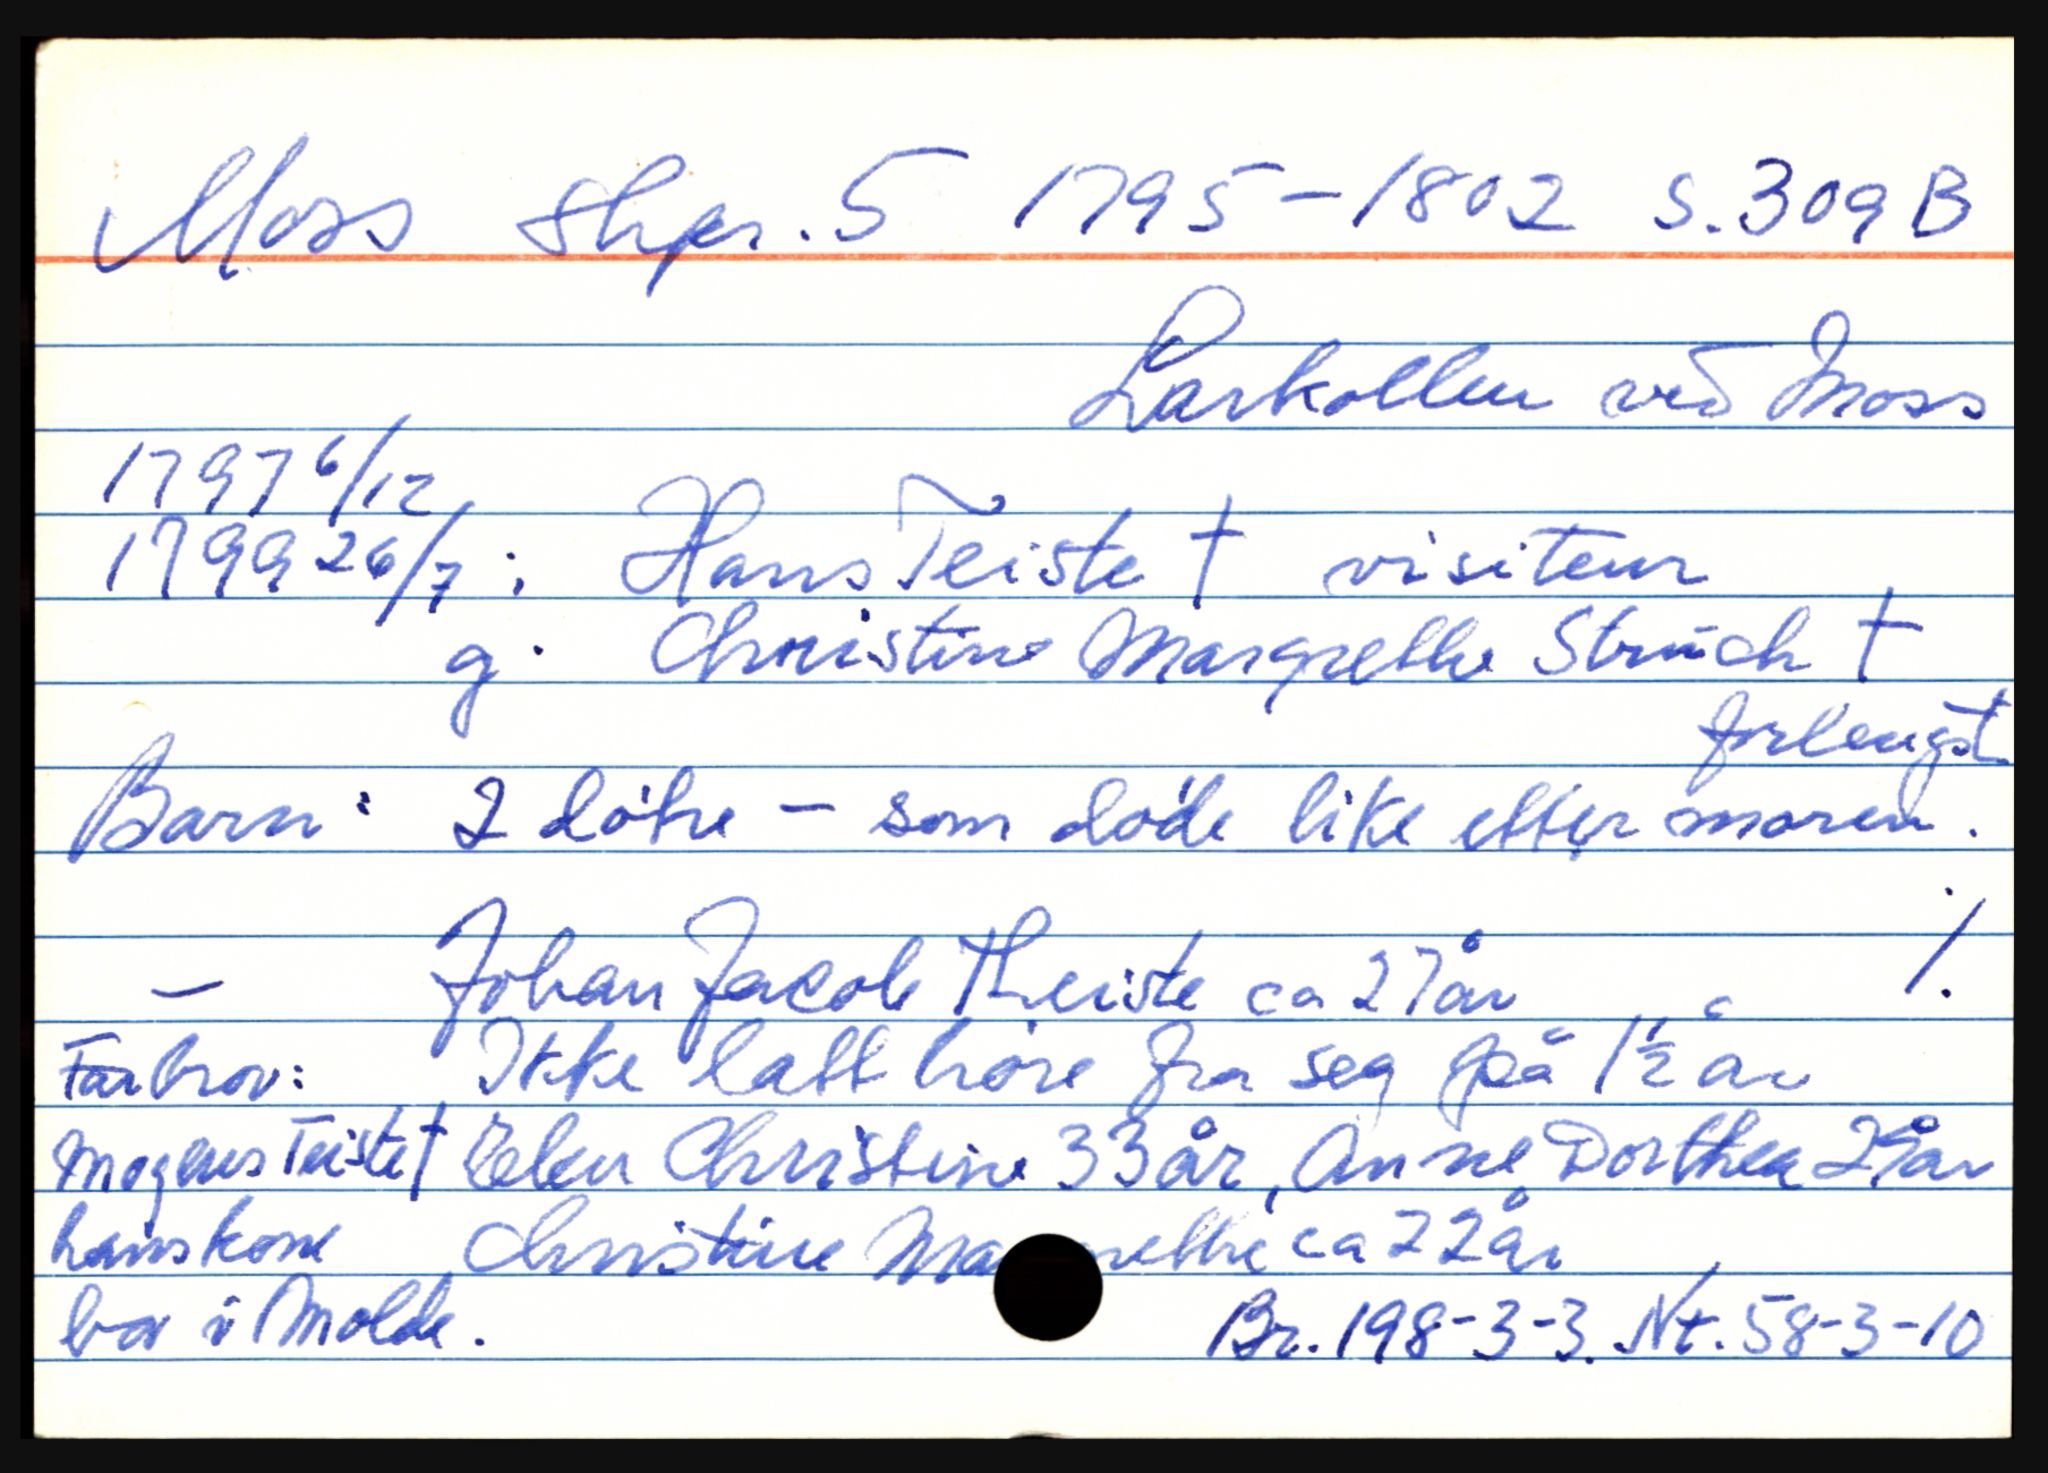 Moss Skpr. 5 1795-1802 S. 309 B
Larkollen ved Moss
1797 6/12
1799 26/7: Hans Teiste † visiteur
g. Christine Margrethe Struch †
forlengst
Barn: 2 døtre - som døde like etter moren.
- Johan Jacob Theiste ca 27 år ./.
Farbror: Ikke latt høre fra seg på 1 1/2 år
Mogens Teiste † Elen Christine 33 år, Anne Dorthea 29 år
hans kone Christine Margrethe ca 22 år
bor i Molde. Br. 198-3-3. Nt. 58-3-10